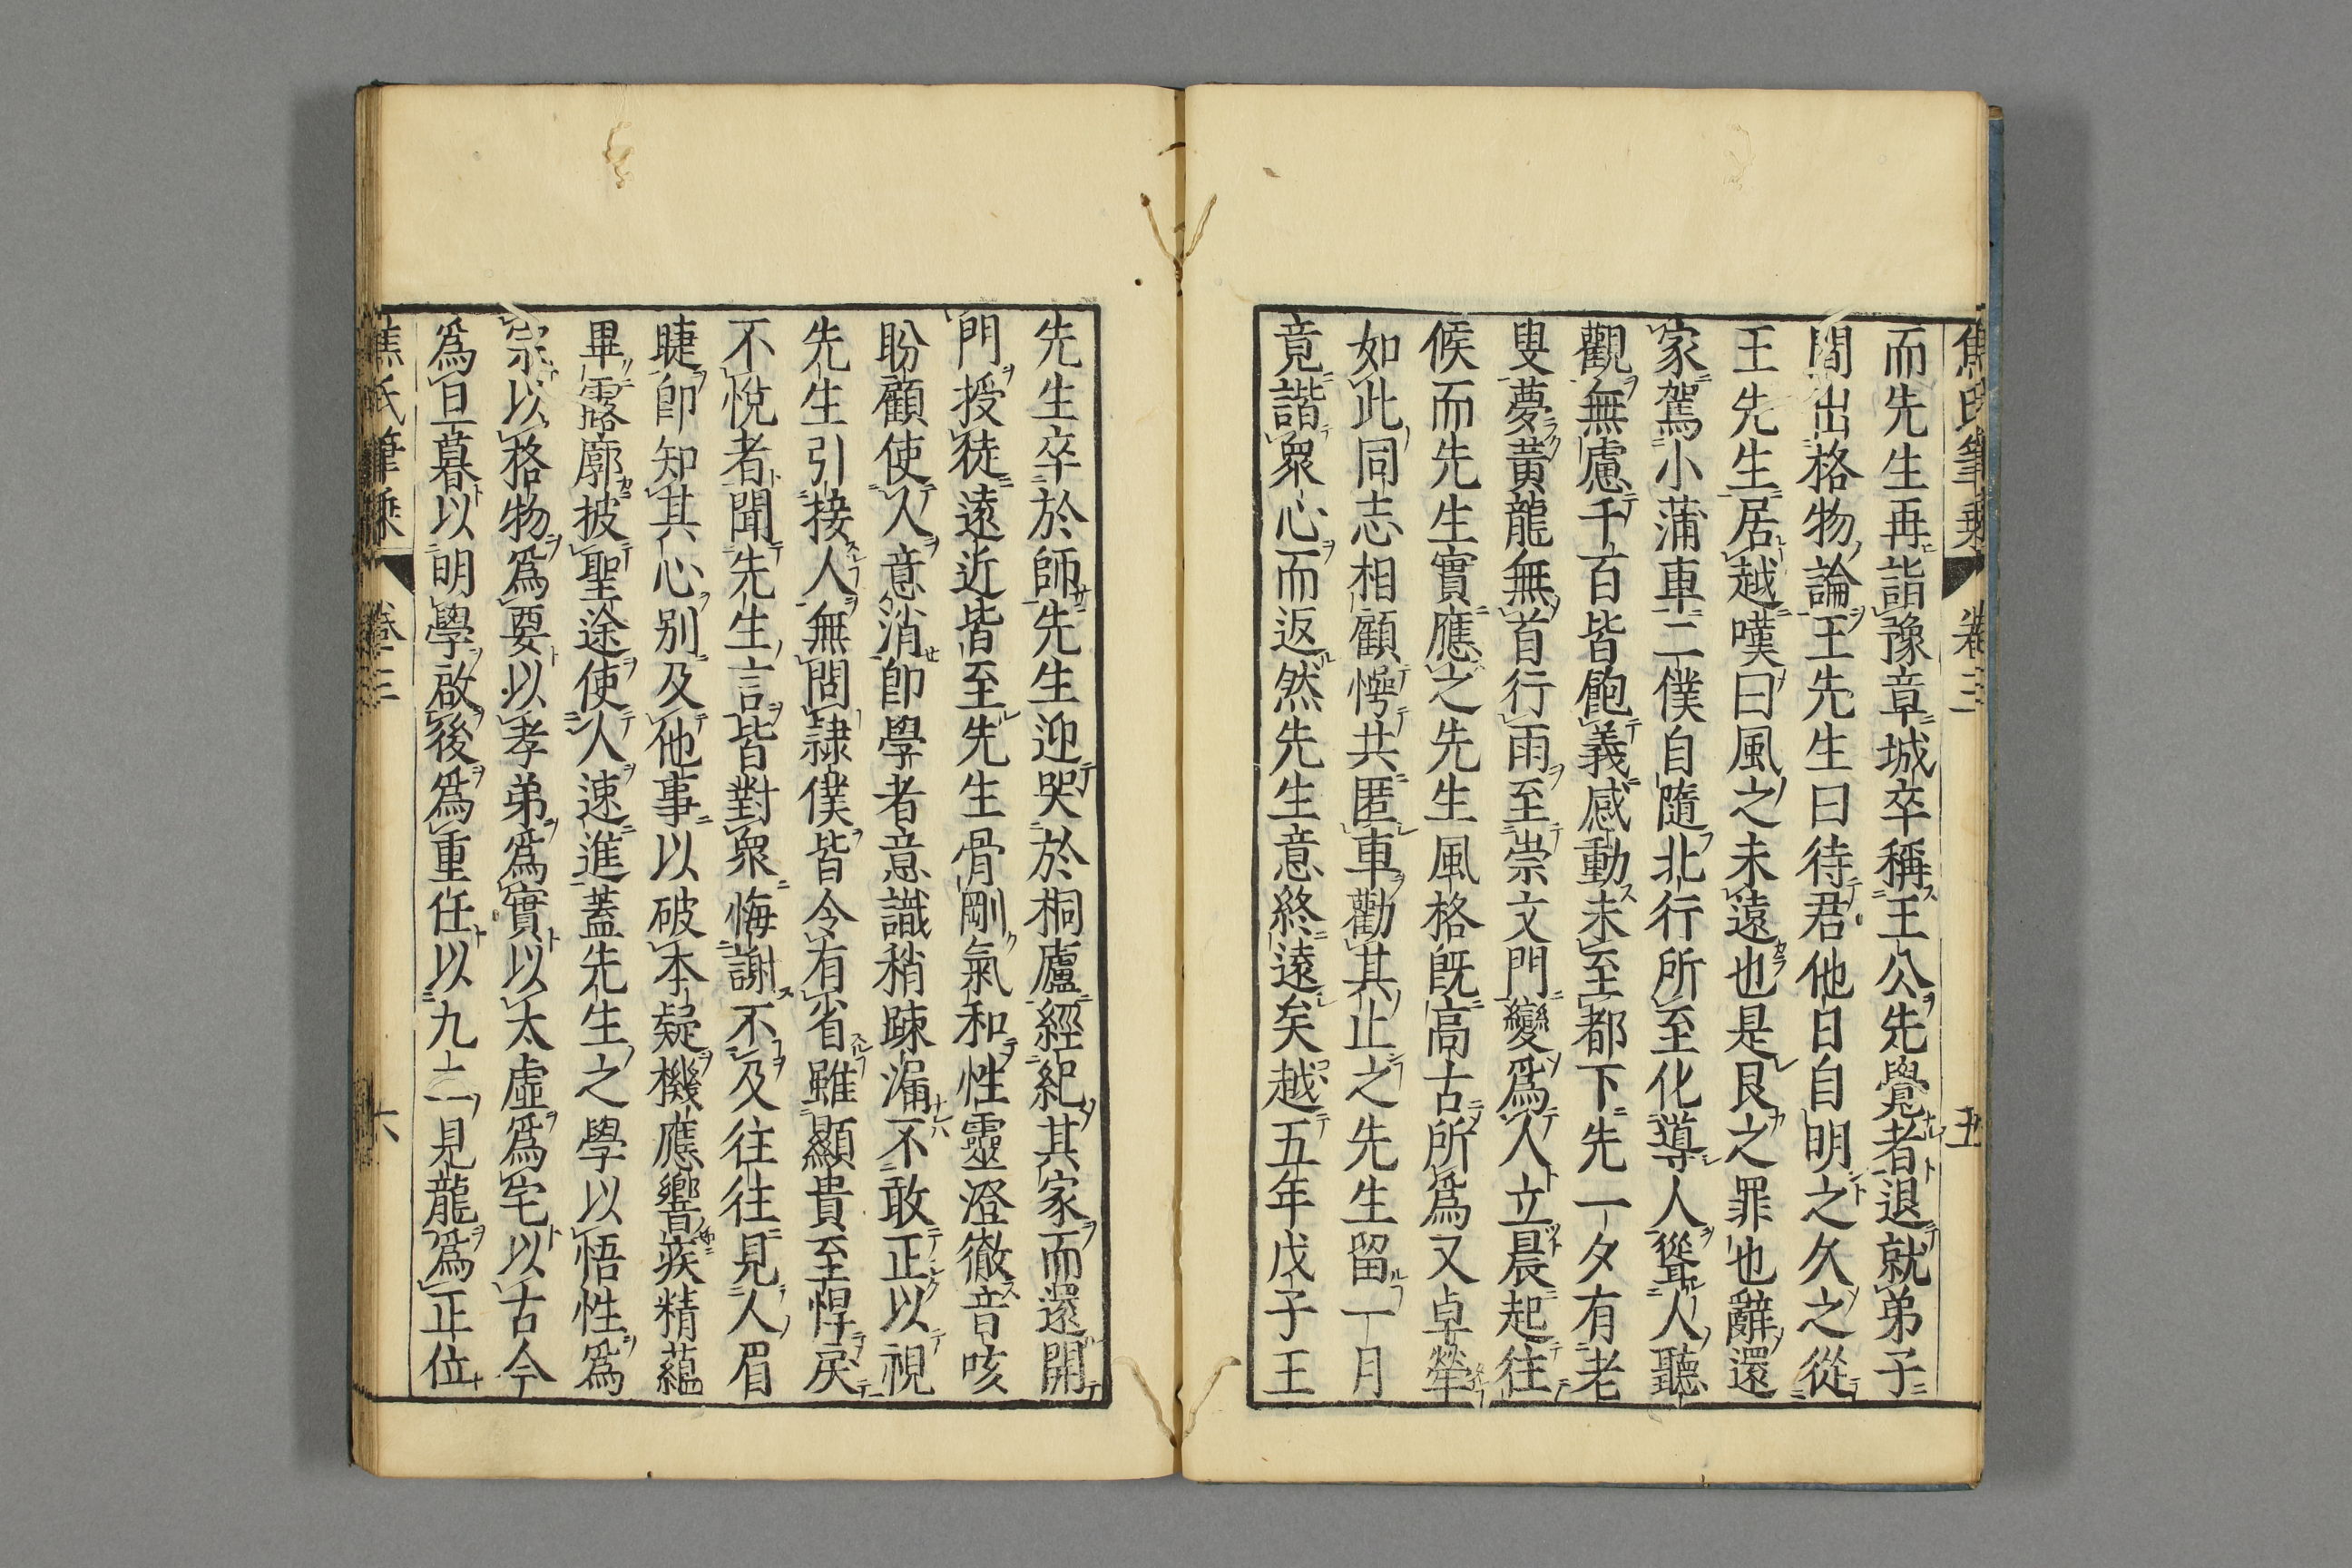 焦氏筆乘 卷三 五
而先生再詣豫章城卒稱王公先覺者退就弟子
間出格物論王先生曰待君他日自明之久之從
王先生居越嘆曰風之未遠也是艮之罪也辭還
家駕小蒲車二僕自隨北行所至化導人聳人聽
觀無慮千百皆飽義感動未至都下先一夕有老
叟夢黃龍無首行雨至崇文門變爲人立晨起往
候而先生實應之先生風格旣高古所爲又卓犖
如此同志相顧愕共匿車勸其止之先生留一月
竟諧衆心而返然先生意終遠矣越五年戊子王
先生卒於師先生迎哭於桐廬經紀其家而還開
門授徒遠近皆至先生骨剛氣和性靈澄徹音咳
盼顧使人意消卽學者意識稍踈漏不敢正以視
先生引接人無問隷僕皆令有省雖顯貴至悍戾
不悅者聞先生言皆對衆悔謝不及往往見人眉
睫卽知其心別及他事以破本疑機應響疾精蘊
畢露廓披聖途使人速進蓋先生之學以悟性爲
宗以格物爲要以孝弟爲實以太虛爲宅以古今
爲旦暮以明學啟後爲重任以九二見龍爲正位
焦氏筆乘 卷三 六